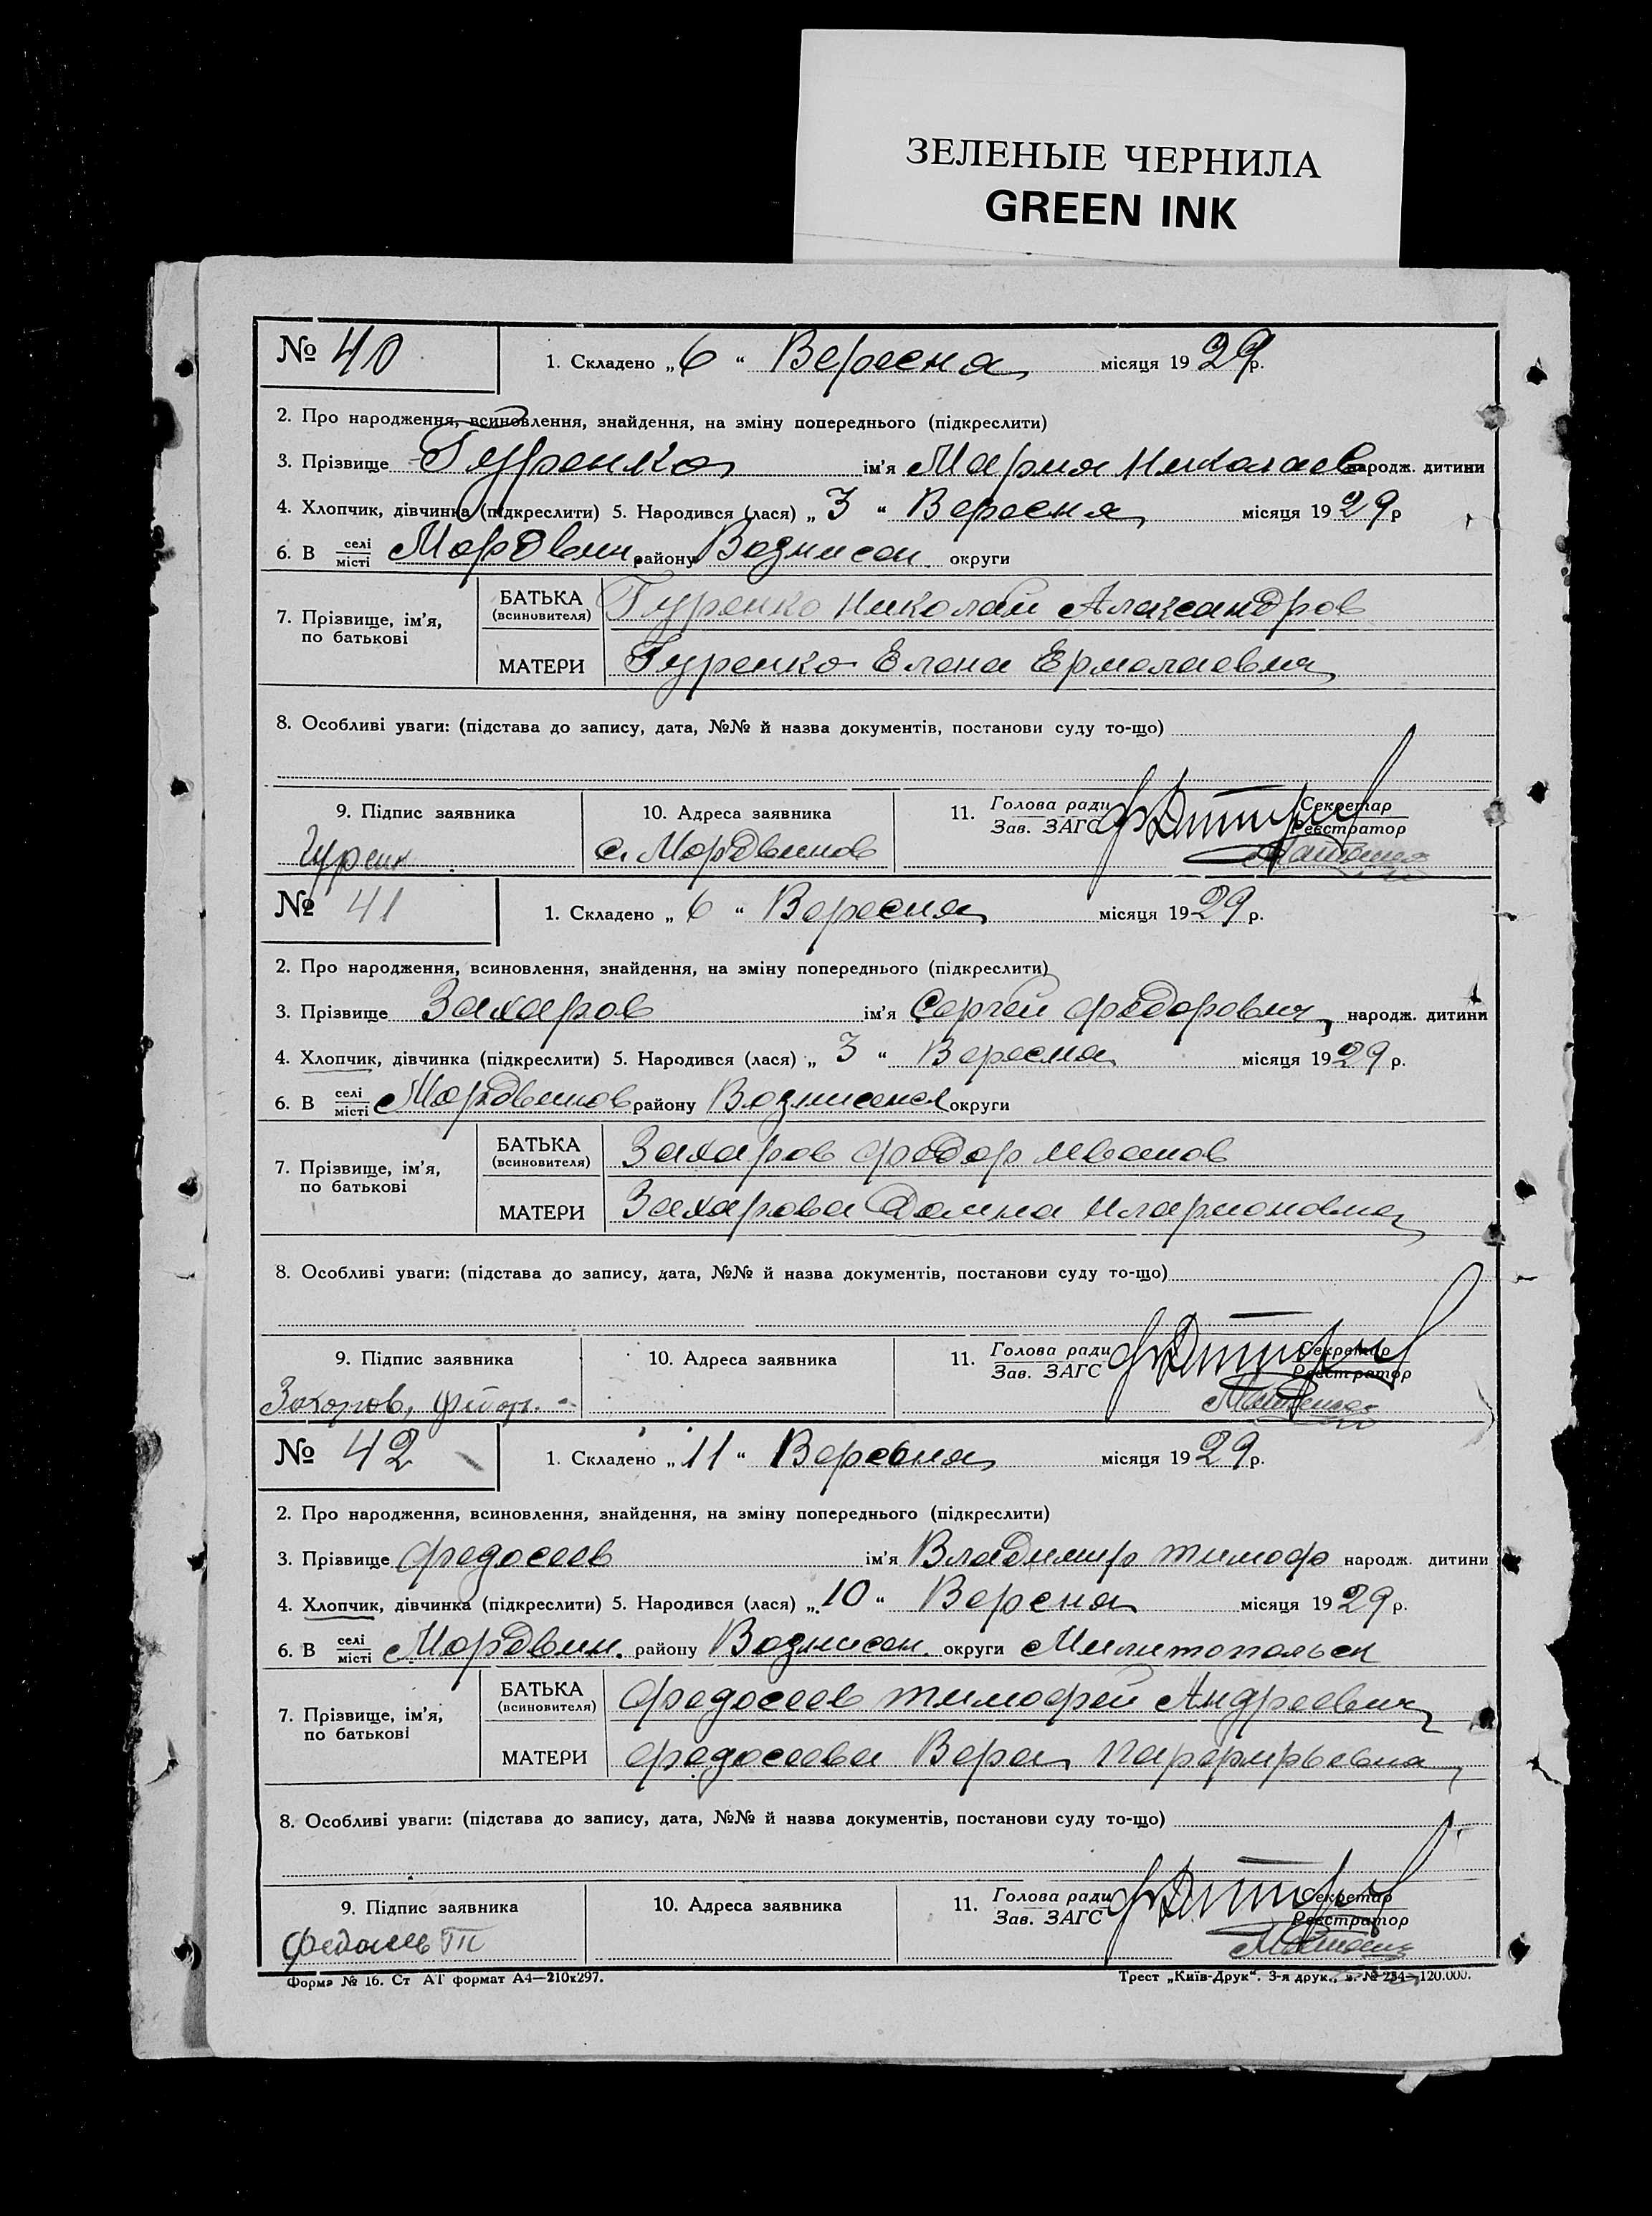 ЗЕЛЕНЫЕ ЧЕРНИЛА
GREEN INK
№ 40 1. Складено „6“ Вересня місяця 1929 р.
2. Про народження, всиновлення, знайдення, на зміну попереднього (підкреслити)
3. Прізвище Гуренко ім'я Мария Николаев народж. дитини
4. Хлопчик, дівчинка (підкреслити) 5. Народився (лася) „3“ Вересня місяця 1929 р
6. В селі місті Мордвин району Вознисен. округи
7. Прізвище, ім'я, по батькові
БАТЬКА (всиновителя) Гуренко Николай Александров
МАТЕРИ Гуренко Елена Ермолаевна
8. Особливі уваги: (підстава до запису, дата, №№ й назва документів, постанови суду то-що)
9. Підпис заявника 10. Адреса заявника 11. Голова ради Зав. ЗАГС Секретар Реєстратор
Гуренк с. Мордвинов
№ 41 1. Складено „6“ Вересня місяця 1929 р.
2. Про народження, всиновлення, знайдення, на зміну попереднього (підкреслити)
3. Прізвище Захаров ім'я Сергей Федорович народж. дитини
4. Хлопчик, дівчинка (підкреслити) 5. Народився (лася) „3“ Вересна місяця 1929 р.
6. В селі місті Мордвинов району Вознисенск округи
7. Прізвище, ім'я, по батькові
БАТЬКА (всиновителя) Захаров Федор Иванов
МАТЕРИ Захарова Домна Иларионовна
8. Особливі уваги: (підстава до запису, дата, №№ й назва документів, постанови суду то-що)
9. Підпис заявника 10. Адреса заявника 11. Голова ради Зав. ЗАГС Секретар Реєстратор
Захаров,
№ 42 1. Складено „11“ Вересня місяця 1929 р.
2. Про народження, всиновлення, знайдення, на зміну попереднього (підкреслити)
3. Прізвище Федосеев ім'я Владимир Тимоф народж. дитини
4. Хлопчик, дівчинка (підкреслити) 5. Народився (лася) „10“ Версна місяця 1929 р.
6. В селі місті Мордвин. району Вознисен. округи Милитопольск
7. Прізвище, ім'я, по батькові
БАТЬКА (всиновителя) Федосеев Тимофей Андреевич
МАТЕРИ Федосеева Вера Парфирьевна
8. Особливі уваги: (підстава до запису, дата, №№ й назва документів, постанови суду то-що)
9. Підпис заявника 10. Адреса заявника 11. Голова ради Зав. ЗАГС Секретар Реєстратор
Форма № 16. Ст АТ формат А4—210x297. Трест „Київ-Друк“. 3-я друк., з. № 234—120.000.